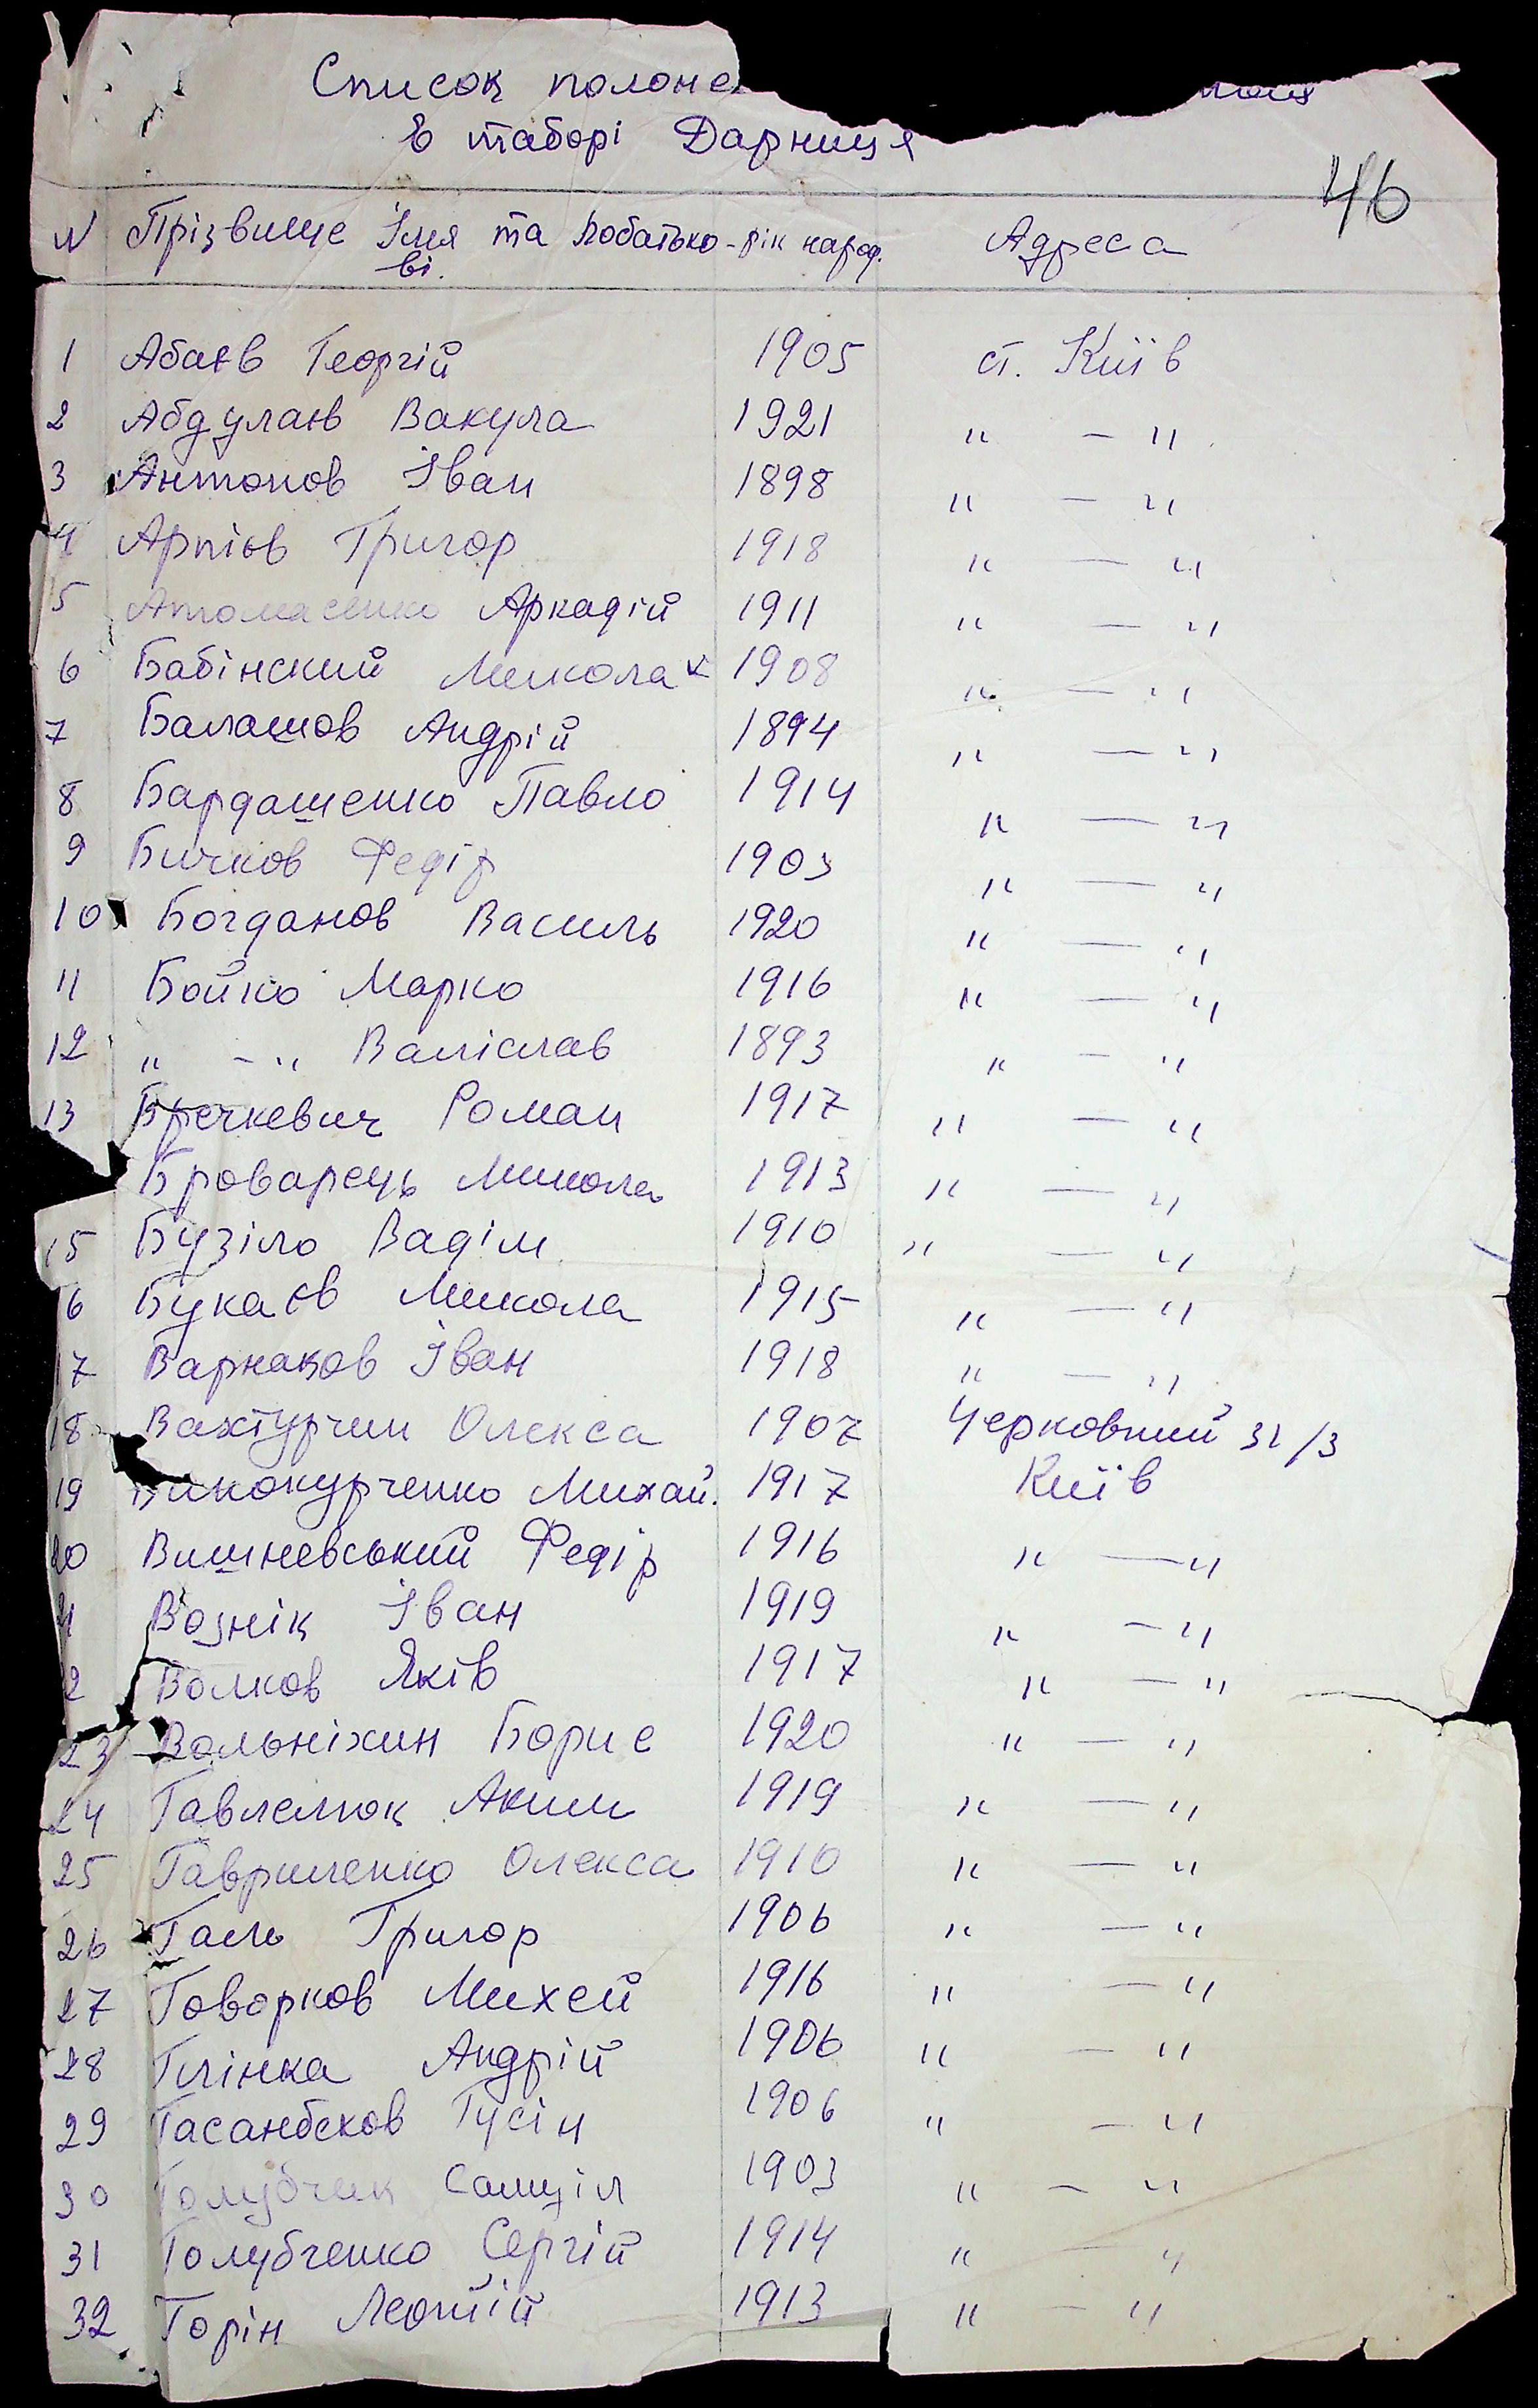 Список полоне
в таборі Дарниця
46
N Прізвище Імя та Побатько- рік народ. Адреса
ві.
1 Абаєв Георгій 1905 ст. Київ
2 Абдулаєв Вакула 1921 " — "
3 Антонов Іван 1898 " — "
4 Арпієв Григор 1918 " — "
5 Аркадій 1911 " — "
6 Бабінский Микола 1908 " — "
7 Балашов Андрій 1894 " — "
8 Бардашенко Павло 1914 " — "
9 Бичков Федір 1903 " — "
10 Богданов Василь 1920 " — "
11 Бойко Марко 1916 " — "
12 " - " Валіслав 1893 " — "
13 Бречкевич Роман 1917 " — "
Броварець Микола 1913 " — "
15 Бузіло Вадім 1910 " — "
6 Букаєв Микола 1915 " — "
7 Варнаков Іван 1918 " — "
18 Вахтурчин Олекса 1907 Черковний 31/3
19 Винокурченко Михай. 1917 Київ
20 Вишневський Федір 1916 " — "
21 Вознік Іван 1919 " — "
2 Волков Яків 1917 " — "
23 Вольніхин Борис 1920 " — "
24 Гавлелюк Аким 1919 " — "
25 Гавриленко Олекса 1910 " — "
26 Галь Григор 1906 " — "
27 Говорков Михей 1916 " — "
28 Глінка Андрій 1906 " — "
29 Гасанбеков Гусін 1906 " — "
30 Голубчик Самуіл 1903 " — "
31 Голубченко Сергій 1914 " — "
32 Горін Леонтій 1913 " — "